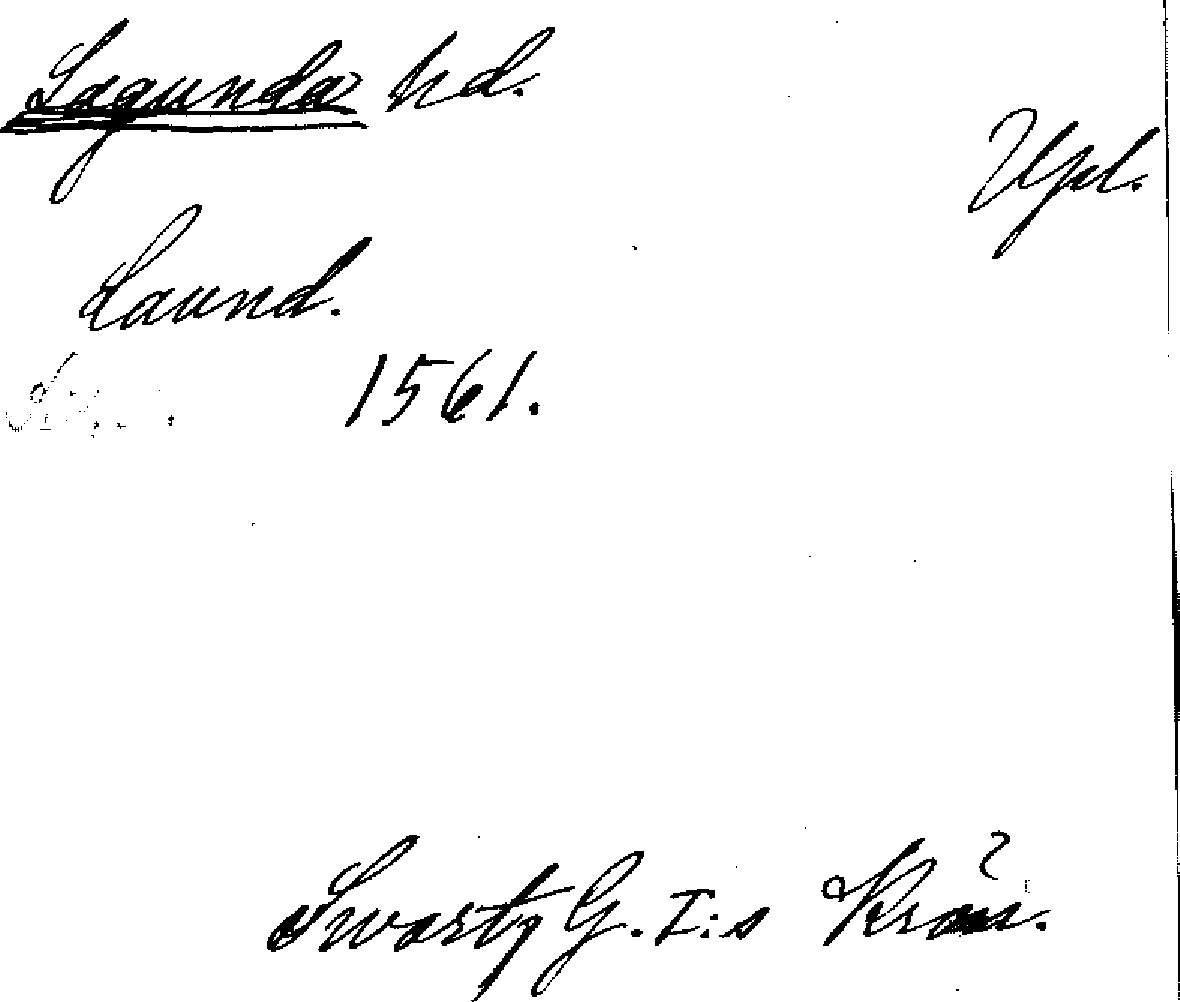 Lagunda hd.
Upl.
Laund.
1561.
Swartz G. I:s Krön.